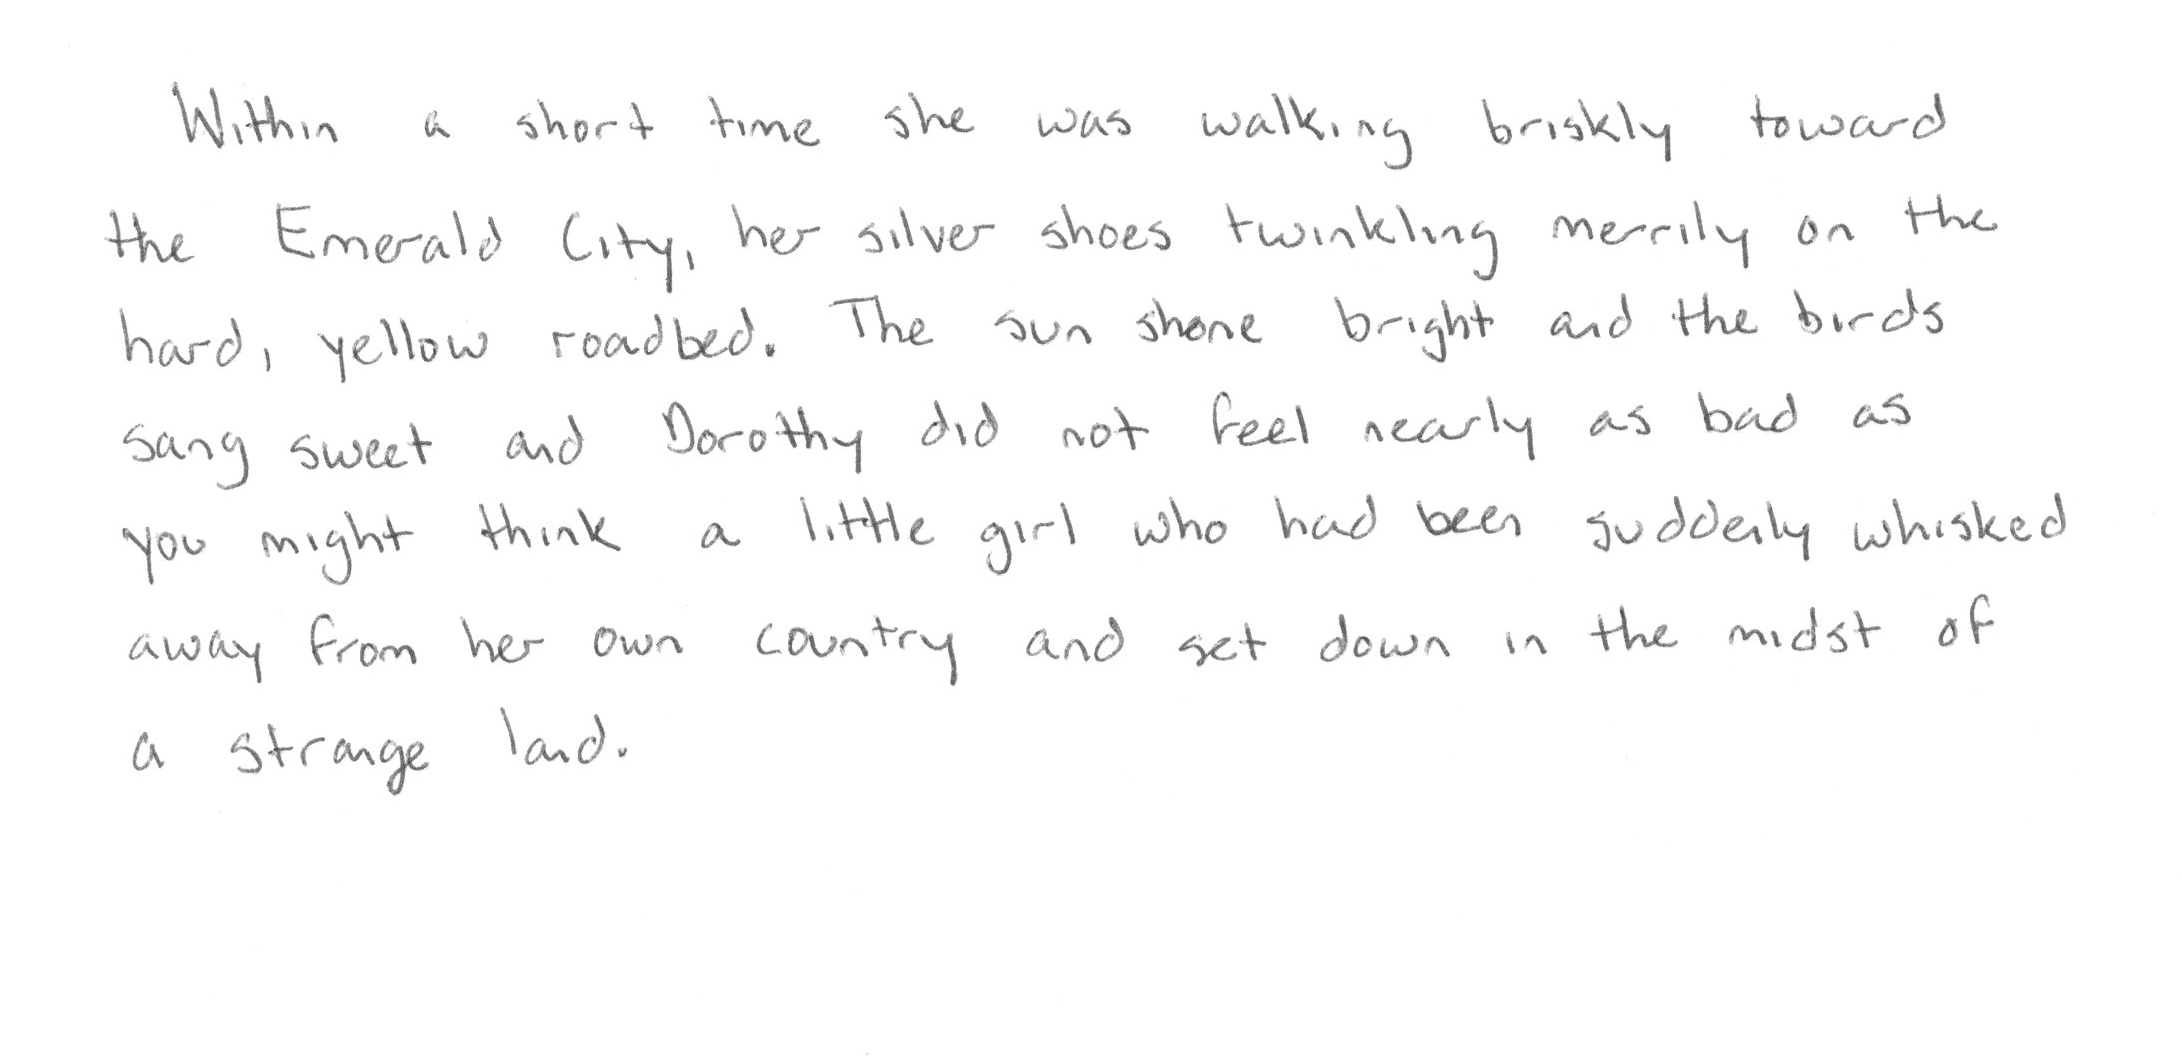 Within a short time she was walking briskly toward
the Emerald City, her silver shoes twinkling merrily on the
hard, yellow roadbed. The sun shone bright and the birds
sang sweet and Dorothy did not feel nearly as bad as
you might think a little girl who had been suddenly whisked
away from her own country and set down in the midst of
a strange land.